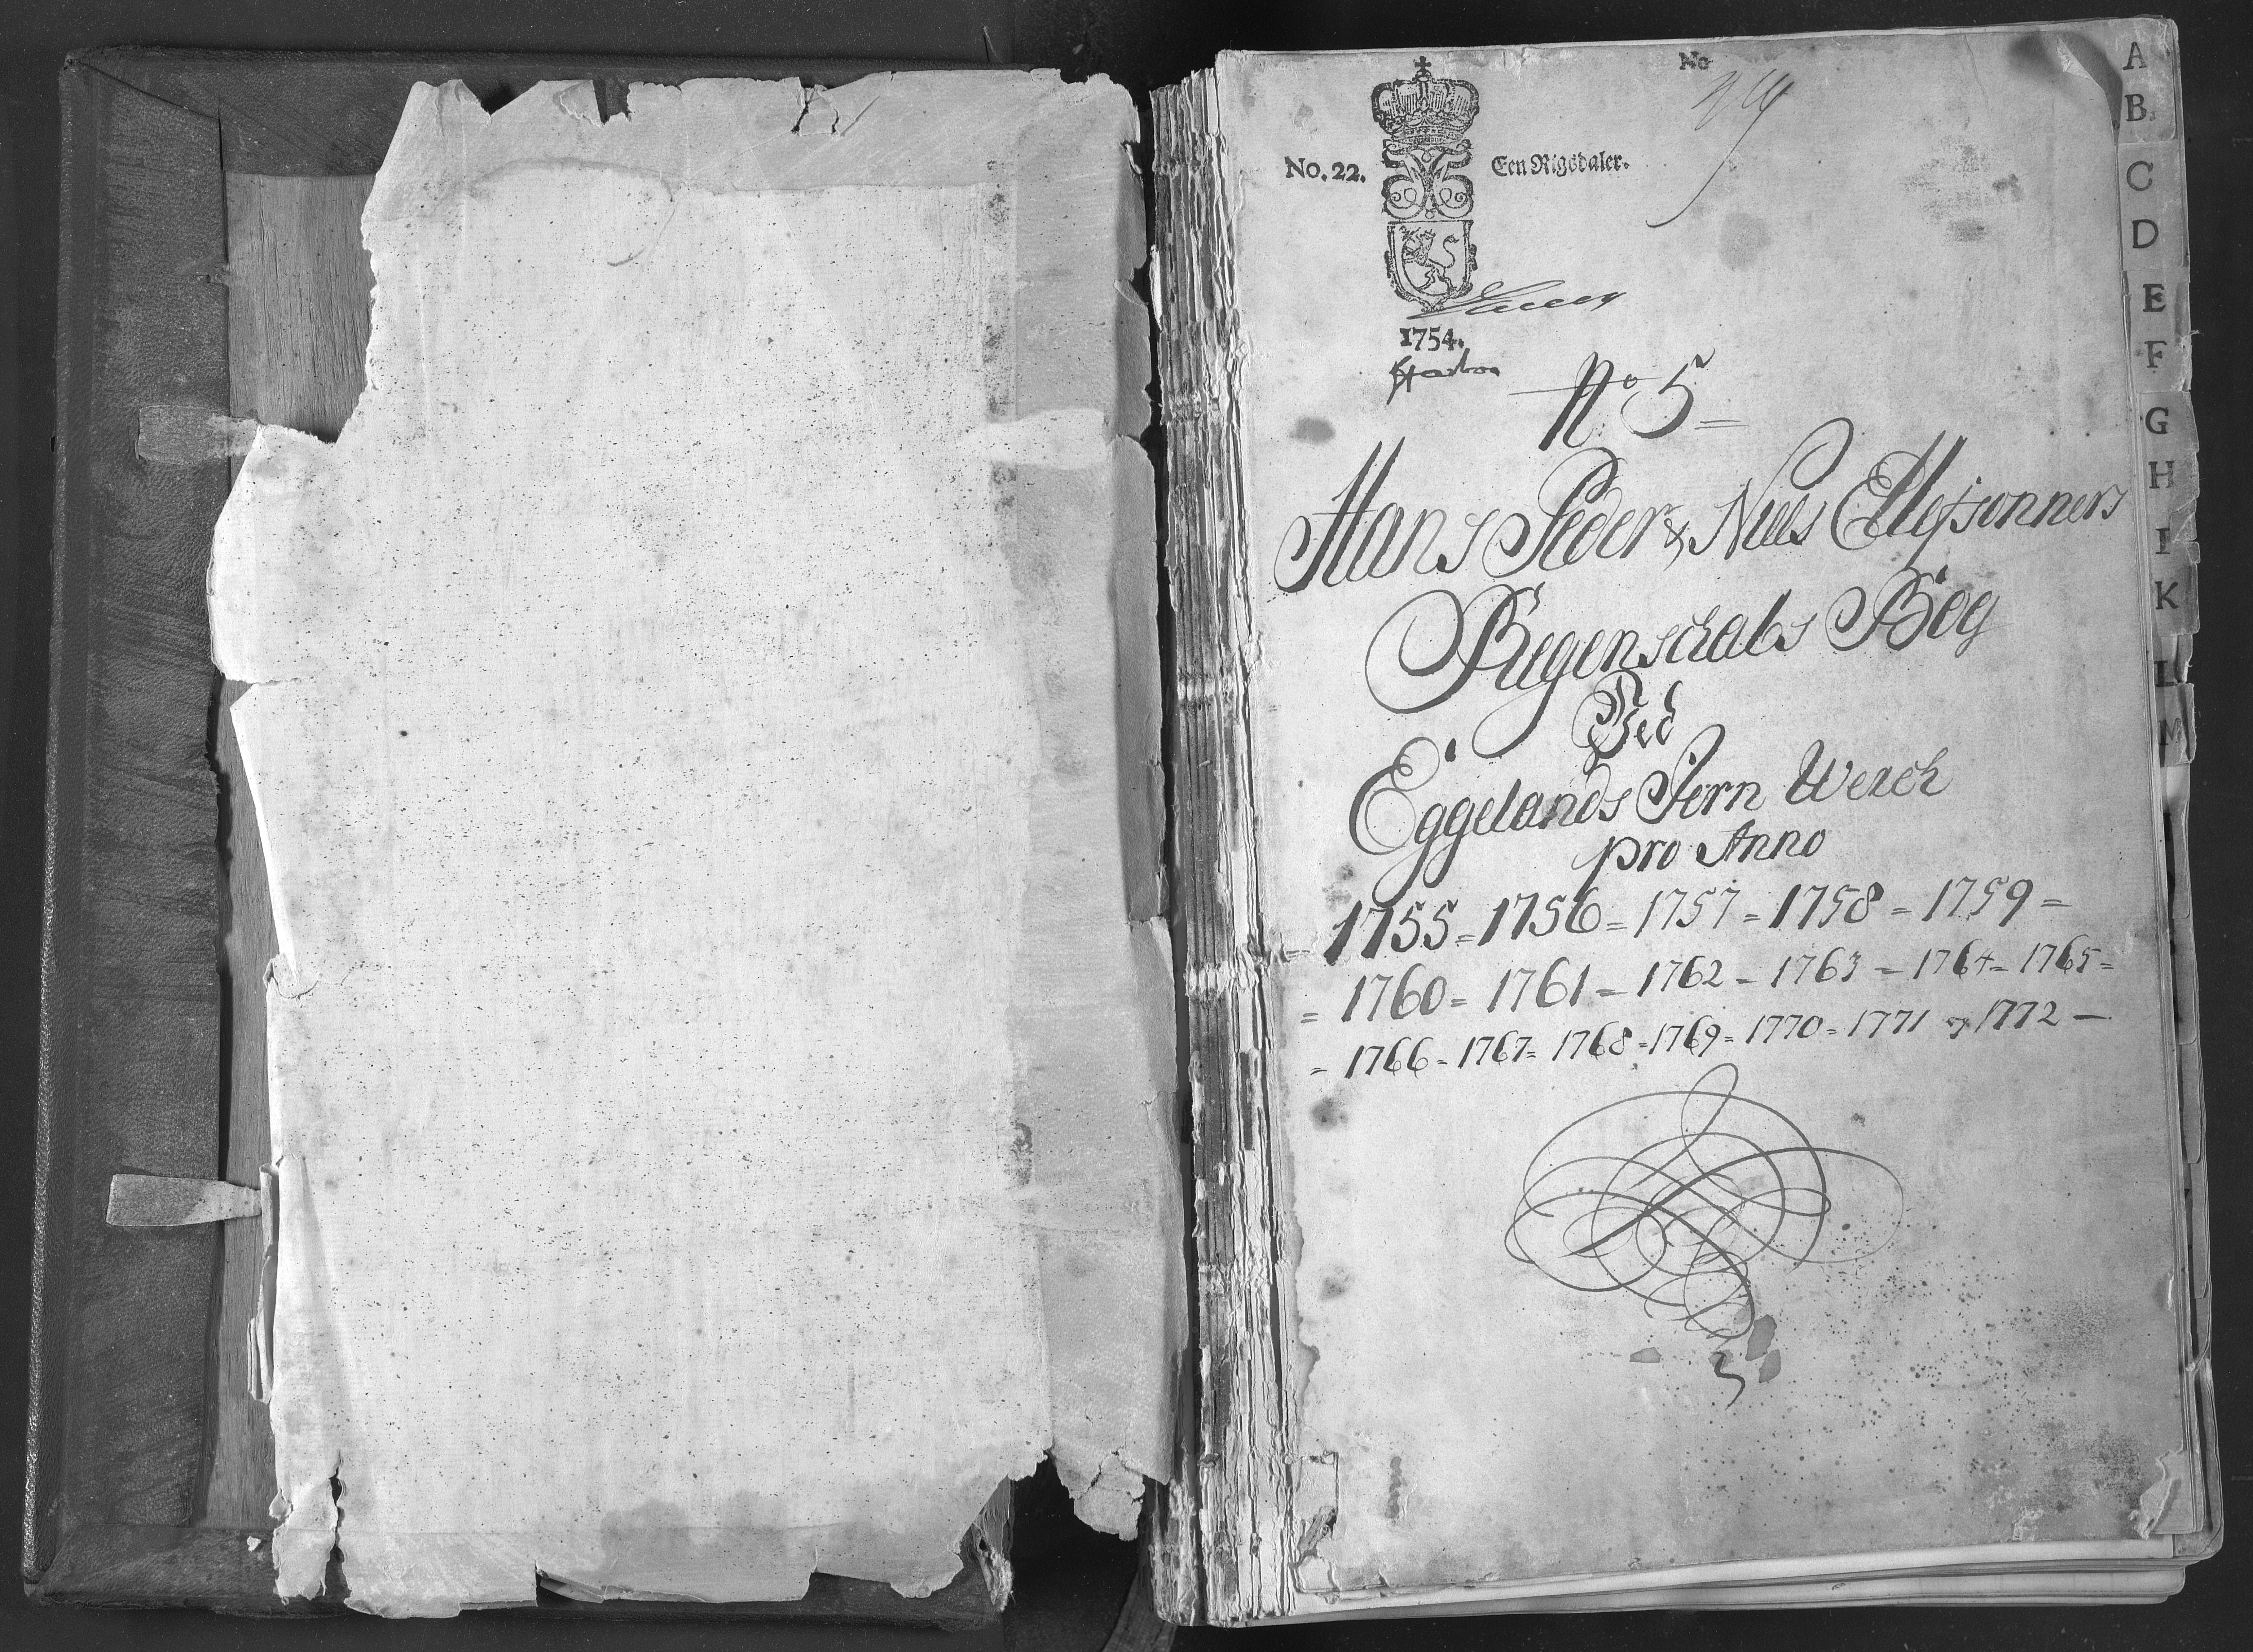 No
No. 22.
Een Rigsdaler.
1754.
No 5
Hans Peder & Niels Ellefsønners
Regenschabs Bog
Ved
Eggelands Jern Werch
pro Anno
= 1755 = 1756 = 1757 = 1758 = 1759 =
= 1760 = 1761 = 1762 = 1763 = 1764 = 1765 =
= 1766 = 1767 = 1768 = 1769 = 1770 = 1771 og 1772 —
A
B
C
D
E
F
G
H
I
K
L
M